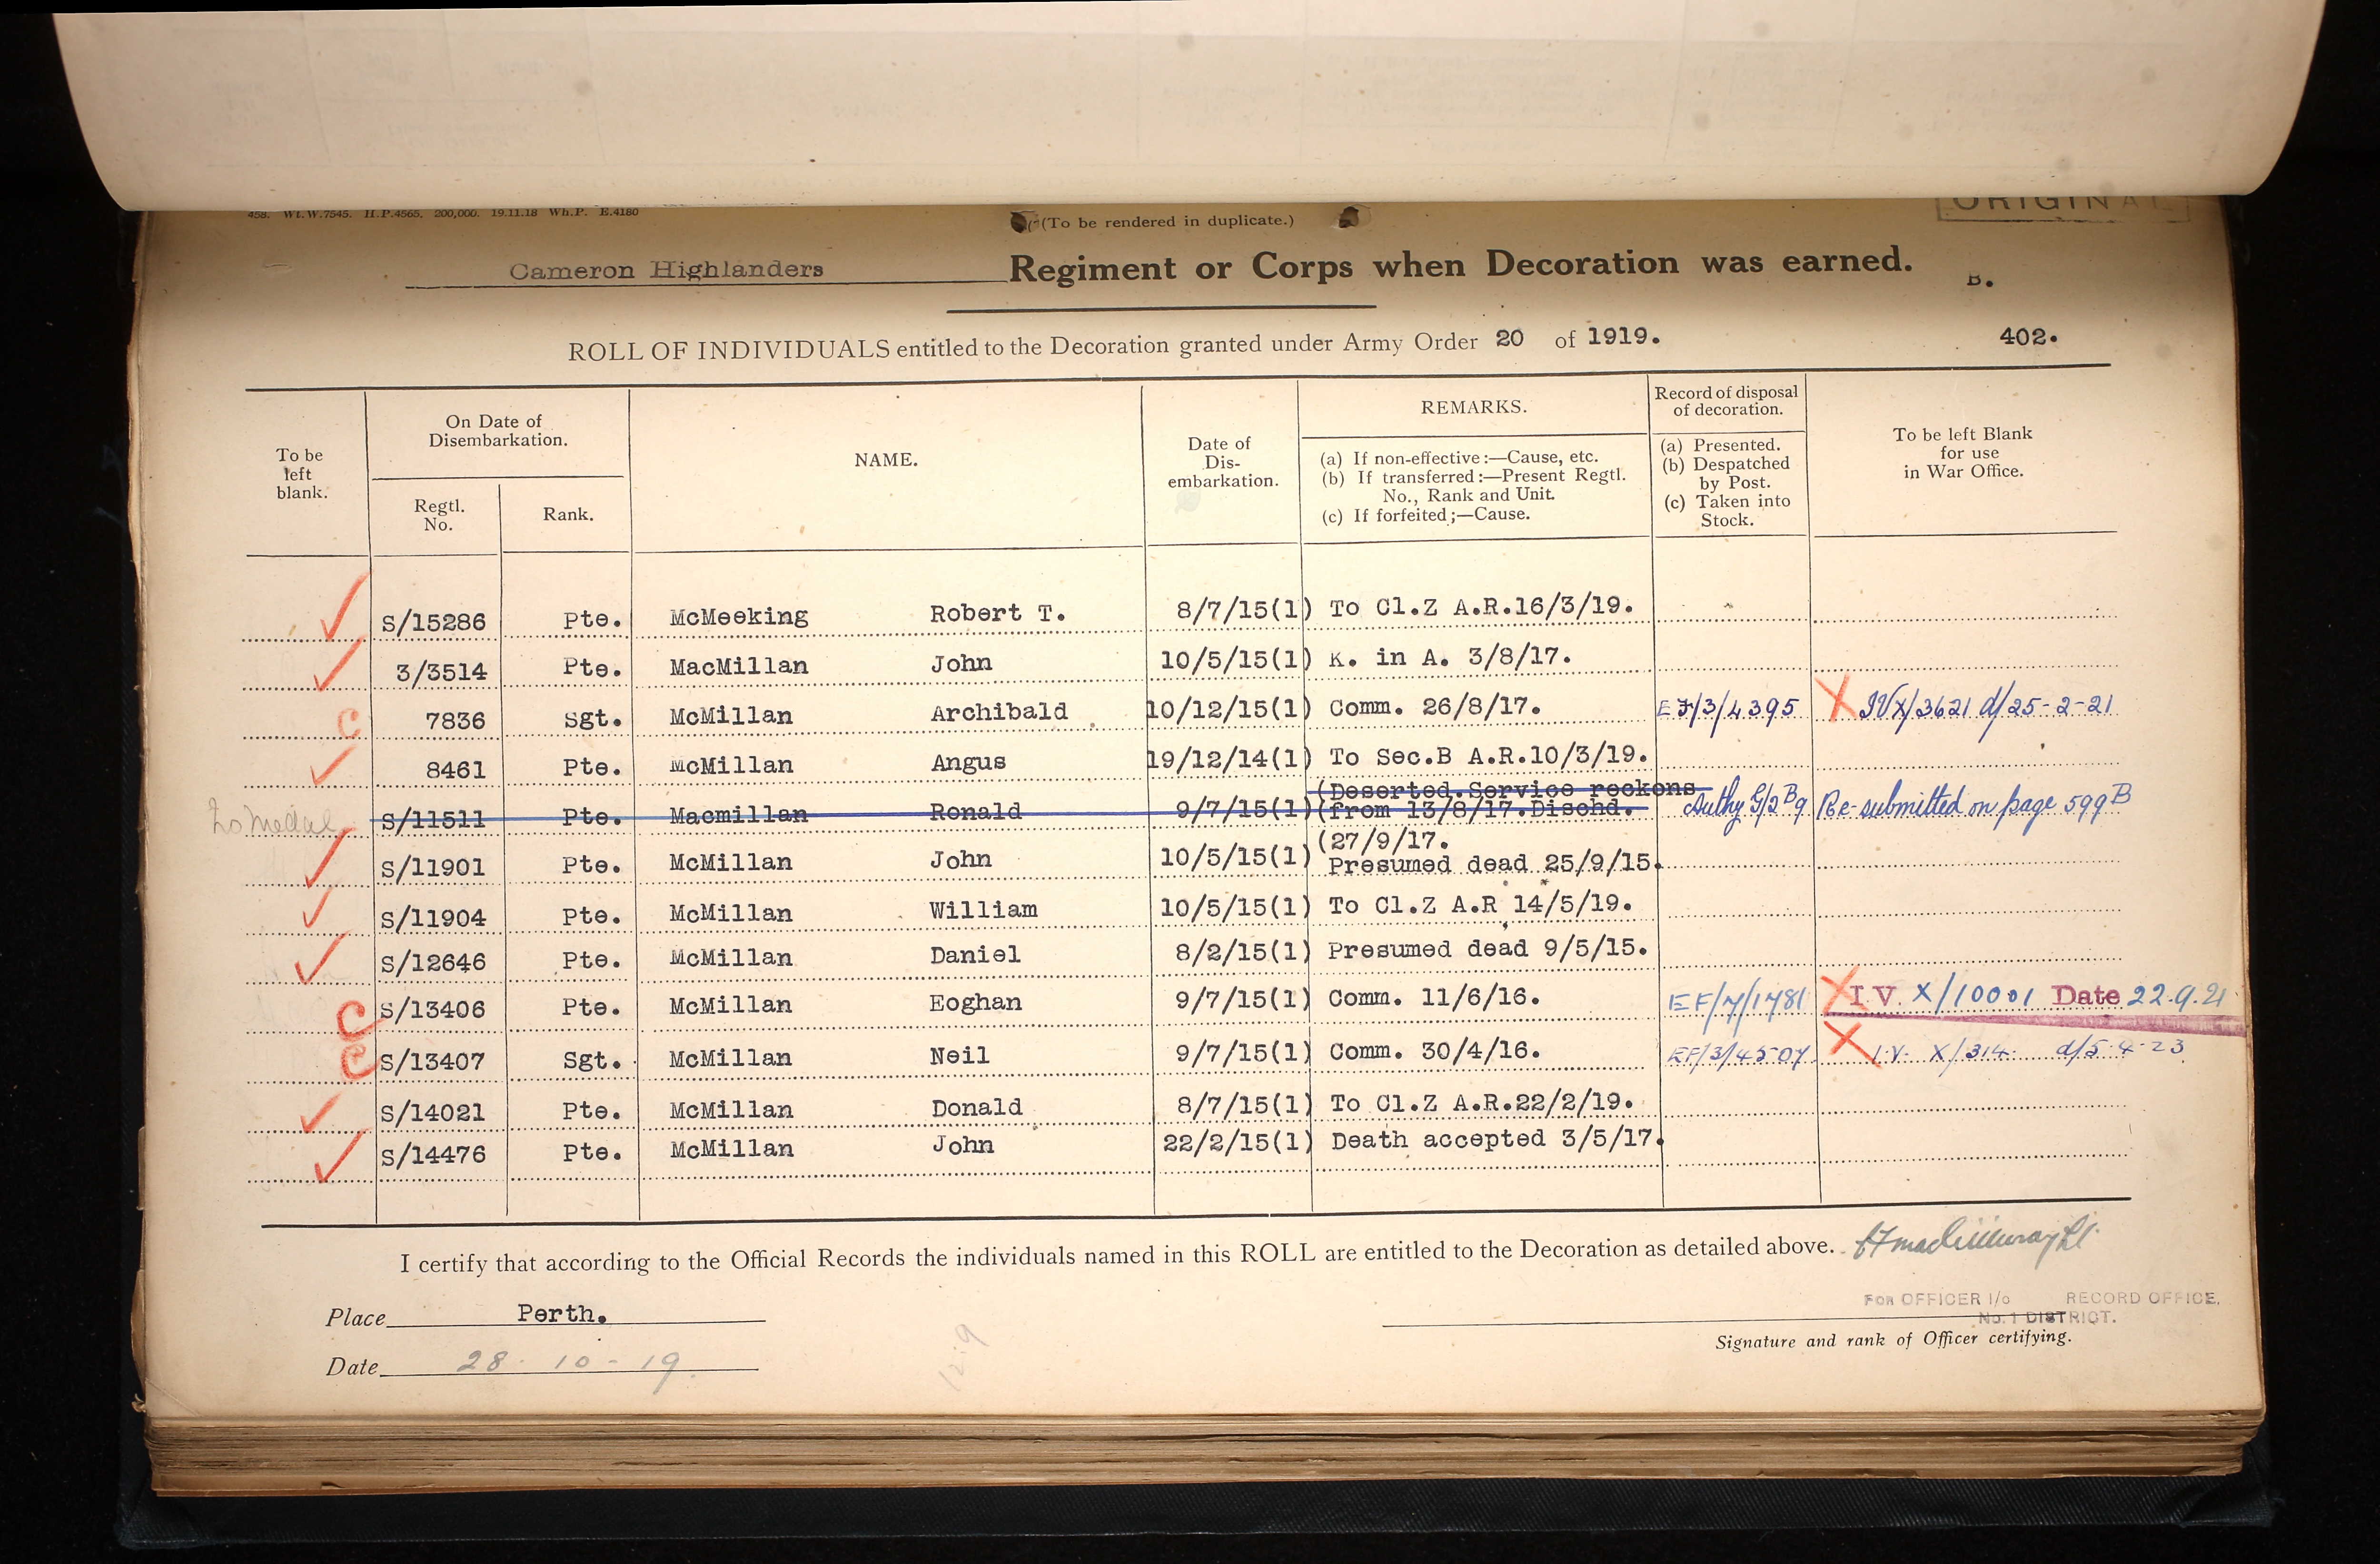 458. Wt.W.7545. H.P.4565. 200,000. 19.11.18 Wh.P. E.4180
(To be rendered in duplicate.)
ORIGINAL
Cameron Highlanders Regiment or Corps when Decoration was earned.
B.
ROLL OF INDIVIDUALS entitled to the Decoration granted under Army Order 20 of 1919.
402.
To be left blank.
On Date of Disembarkation.
Regtl. No.
Rank.
NAME.
Date of Dis-embarkation.
REMARKS.
(a) If non-effective:—Cause, etc.
(b) If transferred:—Present Regtl. No., Rank and Unit.
(c) If forfeited;—Cause.
Record of disposal of decoration.
(a) Presented.
(b) Despatched by Post.
(c) Taken into Stock.
To be left Blank for use in War Office.
S/15286 Pte. McMeeking Robert T. 8/7/15(1) To Cl.Z A.R.16/3/19.
3/3514 Pte. MacMillan John 10/5/15(1) K. in A. 3/8/17.
C 7836 Sgt. McMillan Archibald 10/12/15(1) Comm. 26/8/17. EF/3/4395 X IV X/3621 d/25-2-21
8461 Pte. McMillan Angus 19/12/14(1) To Sec.B A.R.10/3/19.
(Deserted.Service reckons
No Medal S/11511 Pte. Macmillan Ronald 9/7/15(1) (from 13/8/17.Dischd. Authy G/2 B9 Re-submitted on page 599 B
(27/9/17.
S/11901 Pte. McMillan John 10/5/15(1) Presumed dead 25/9/15.
S/11904 Pte. McMillan William 10/5/15(1) To Cl.Z A.R 14/5/19.
S/12646 Pte. McMillan Daniel 8/2/15(1) Presumed dead 9/5/15.
C S/13406 Pte. McMillan Eoghan 9/7/15(1) Comm. 11/6/16. EF/7/1781 X I.V. X/10001 Date 22.9.21
C S/13407 Sgt. McMillan Neil 9/7/15(1) Comm. 30/4/16. EF/3/4507 X I.V. X/314 d/5-4-23
S/14021 Pte. McMillan Donald 8/7/15(1) To Cl.Z A.R.22/2/19.
S/14476 Pte. McMillan John 22/2/15(1) Death accepted 3/5/17.
I certify that according to the Official Records the individuals named in this ROLL are entitled to the Decoration as detailed above.
Place Perth.
FOR OFFICER I/c RECORD OFFICE.
No. 1 DISTRICT.
Signature and rank of Officer certifying.
Date 28-10-19